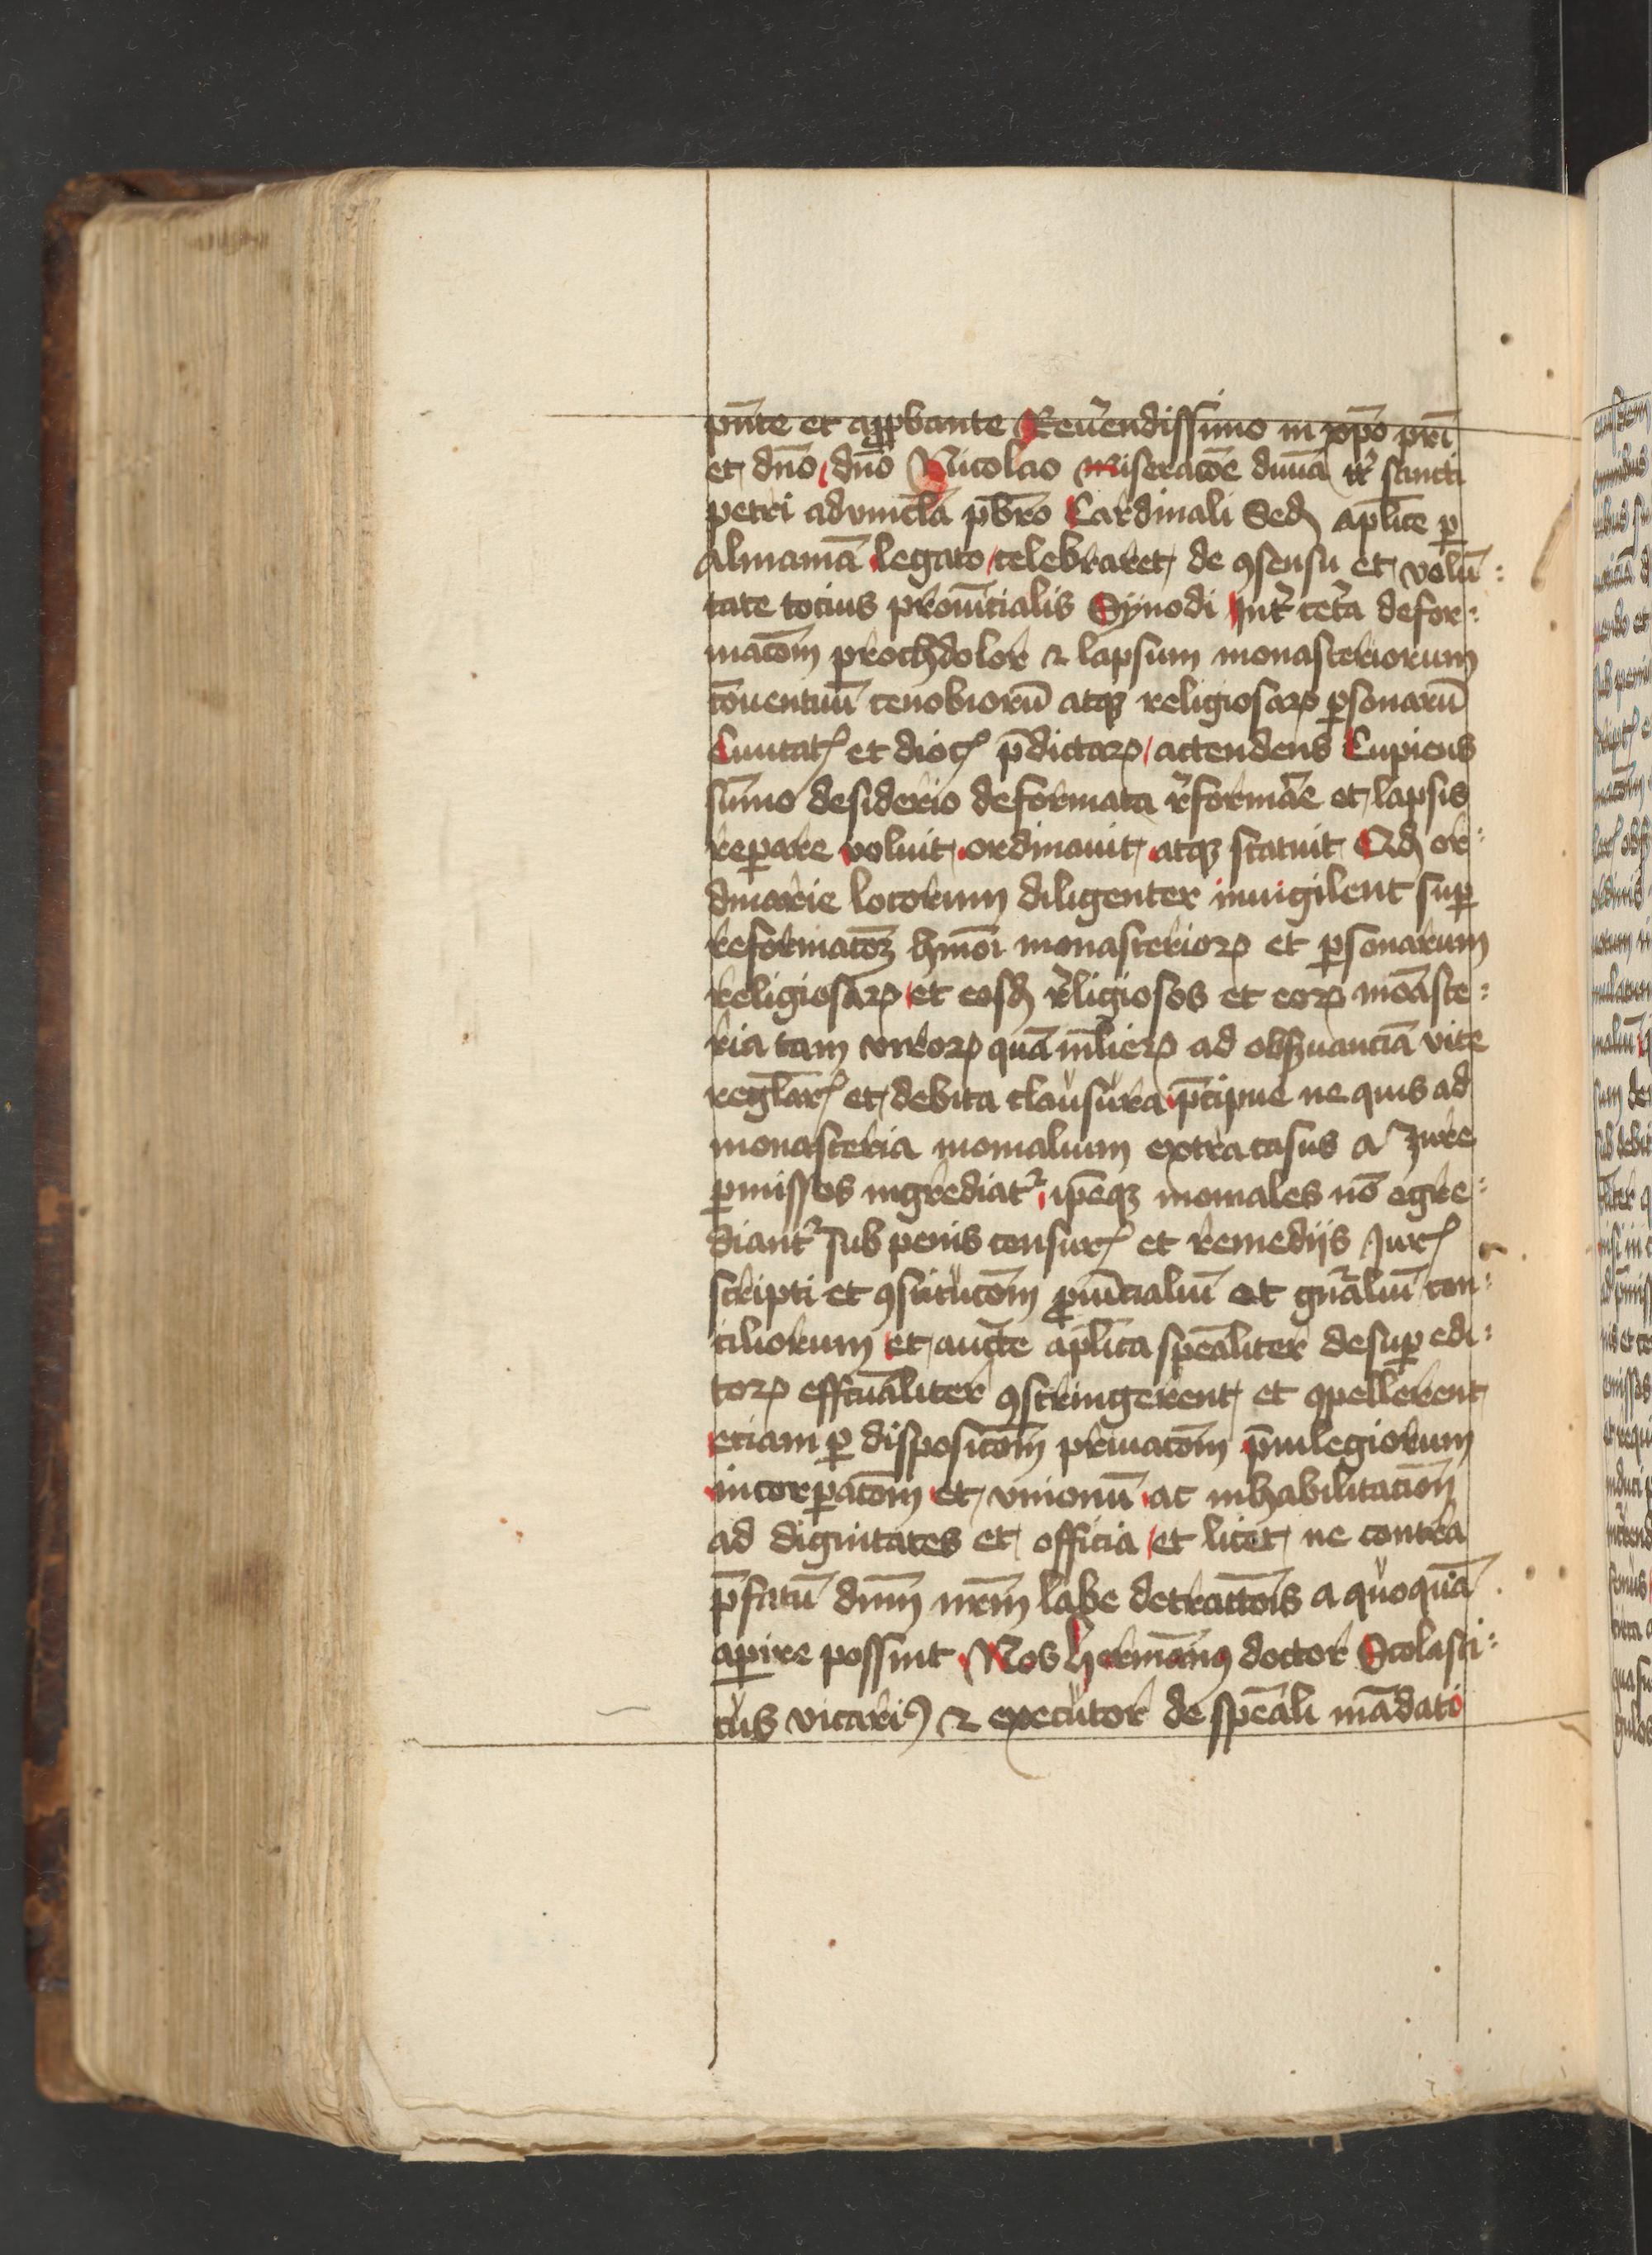 pn̄te et app̱bante Reuͤendissimo in xp̄o pr̄i
et dn̄o dn̄o Nicolao Miserac̄oe diuīa tt̓ sancti
petri aduincl̄a pb̄ro Cardinali Sedꝫ apl̄ice ꝑ
Almaniā legato celebraret de ꝯsensu et volū:
tate tocius prouīcialis Synodi Int̓ cet̓a defor:
mac̄om prochdolor ⁊ lapsum monasteriorum
cōuentuū cenobiorū atqꝫ religiosaꝝ ꝑsonarū
Ciuitatꝭ et diocꝭ p̄dictaꝝ attendens Cupiens
sūmo desiderio deformata r̓formāe et lapsis
reꝑare voluit ordinauit atqꝫ statuit Qđ or:
dinarie locorum diligenter inuigilent suꝑ
reformac̄oꝫ hm̄oi monasterioꝝ et ꝑsonarum
religiosaꝝ et eosđ r̓ligiosos et eoꝝ monaste:
ria tam viroꝝ quā ml̄ieꝝ ad obẜuanciā vite
regl̄arꝭ et debita clausura p̄cipue ne quis ad
monasteria monialium extra casus a Jure
ꝑmissos ingrediat᷑ ip̄eqꝫ moniales nō egre:
diant᷑ sub penis censurꝭ et remedijs Jurꝭ
scripti et ꝯstituc̄om ꝓuīcialiū et gn̄aliū con:
ciliorum et auc̄te apl̄ica spēaliter desuꝑ edi:
toꝝ effcūaliter ꝯstringerent et ꝯpellerent
etiam ꝑ disposic̄om priuac̄om p̄uilegiorum
incorꝑac̄om et vnionū ac inhabilitacion̄
ad dignitates et officia et licet ne contra
p̄fatū dnm̄ nrm̄ labe detractōis a quoquā
aꝑire possint Nos hermānꝰ doctor Scolasti:
cus vicariꝰ ⁊ executor de spēali mādato